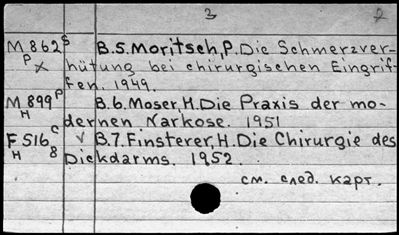 3
M 862 S B.5. Moritsch, P. Die Schmerzver-
P x hütung bei chirurgischen Eingrif-
fen. 1949.
M 899 P B.6. Moser, H. Die Praxis der mo-
H dernen Narkose. 1951
F 516 C v B.7. Finsterer, H. Die Chirurgie des
H 8 Dickdarms. 1952.
см. след. карт.